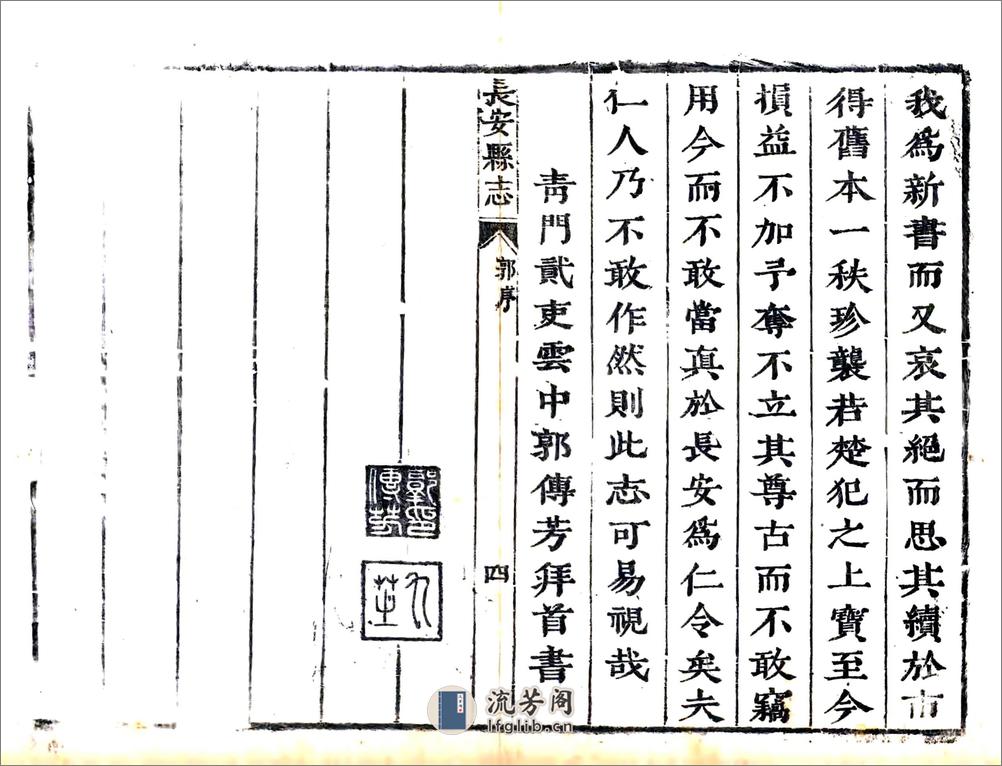 我爲新書而又哀其絕而思其續於市
得舊本一秩珍襲若楚犯之上寶至今
損益不加予奪不立其尊古而不敢竊
用今而不敢當眞於長安爲仁令矣夫
仁人乃不敢作然則此志可易視哉
青門貳吏雲中郭傳芳拜首書
長安縣志
郭序
四
郭印傳芳
九芝
流芳阁
lfglib.cn